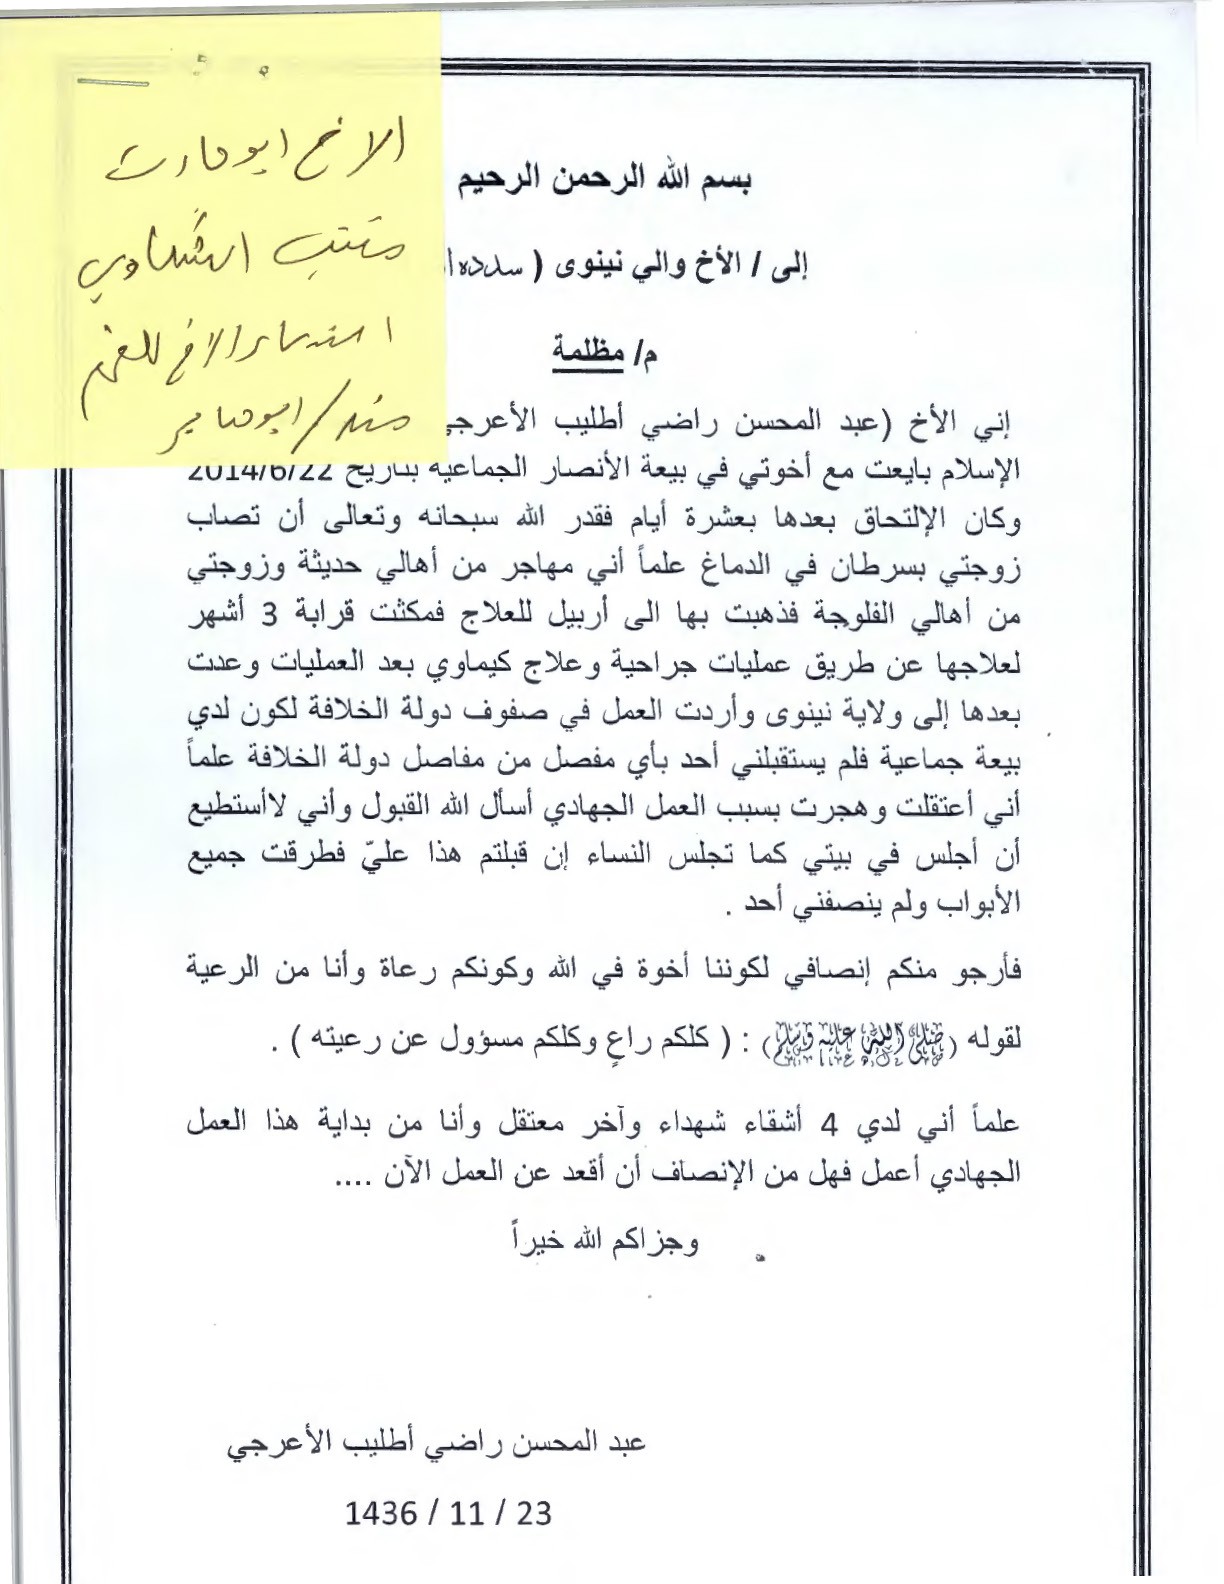 الاخ ابو حارث
مكتب الشكاوي
الاخ
ابو صابر
بسم الله الرحمن الرحيم
إلى / الأخ والي نينوى ( سدده ا
م/ مظلمة
إني الأخ (عبد المحسن راضي أطليب الأعرجي
الإسلام بايعت مع أخوتي في بيعة الأنصار الجماعية بتاريخ 2014/6/22
وكان الإلتحاق بعدها بعشرة أيام فقدر الله سبحانه وتعالى أن تصاب
زوجتي بسرطان في الدماغ علماً أني مهاجر من أهالي حديثة وزوجتي
من أهالي الفلوجة فذهبت بها الى أربيل للعلاج فمكثت قرابة 3 أشهر
لعلاجها عن طريق عمليات جراحية وعلاج كيماوي بعد العمليات وعدت
بعدها إلى ولاية نينوى وأردت العمل في صفوف دولة الخلافة لكون لدي
بيعة جماعية فلم يستقبلني أحد بأي مفصل من مفاصل دولة الخلافة علماً
أني أعتقلت وهجرت بسبب العمل الجهادي أسأل الله القبول وأني لاأستطيع
أن أجلس في بيتي كما تجلس النساء إن قبلتم هذا عليّ فطرقت جميع
الأبواب ولم ينصفني أحد .
فأرجو منكم إنصافي لكوننا أخوة في الله وكونكم رعاة وأنا من الرعية
لقوله (صلى الله عليه وسلم) : ( كلكم راعٍ وكلكم مسؤول عن رعيته ) .
علماً أني لدي 4 أشقاء شهداء وآخر معتقل وأنا من بداية هذا العمل
الجهادي أعمل فهل من الإنصاف أن أقعد عن العمل الآن ....
وجزاكم الله خيراً
عبد المحسن راضي أطليب الأعرجي
23 / 11 / 1436